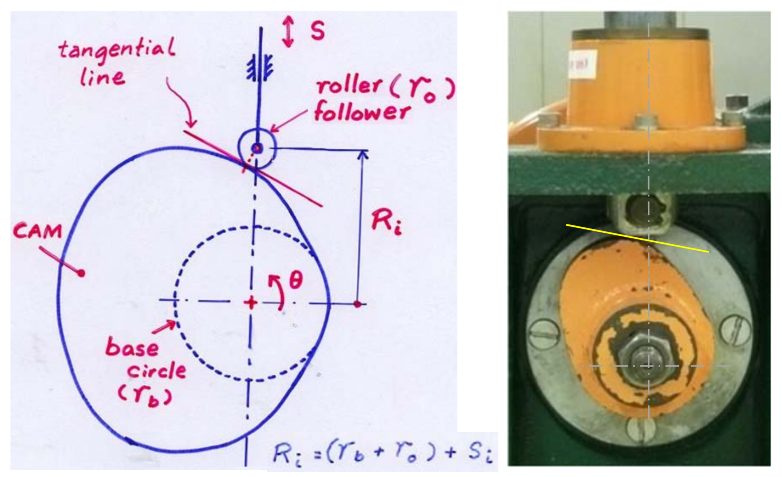 S
tangential
line
roller (r₀)
follower
Rᵢ
CAM
θ
base
circle
(r_b)
Rᵢ = (r_b + r₀) + Sᵢ